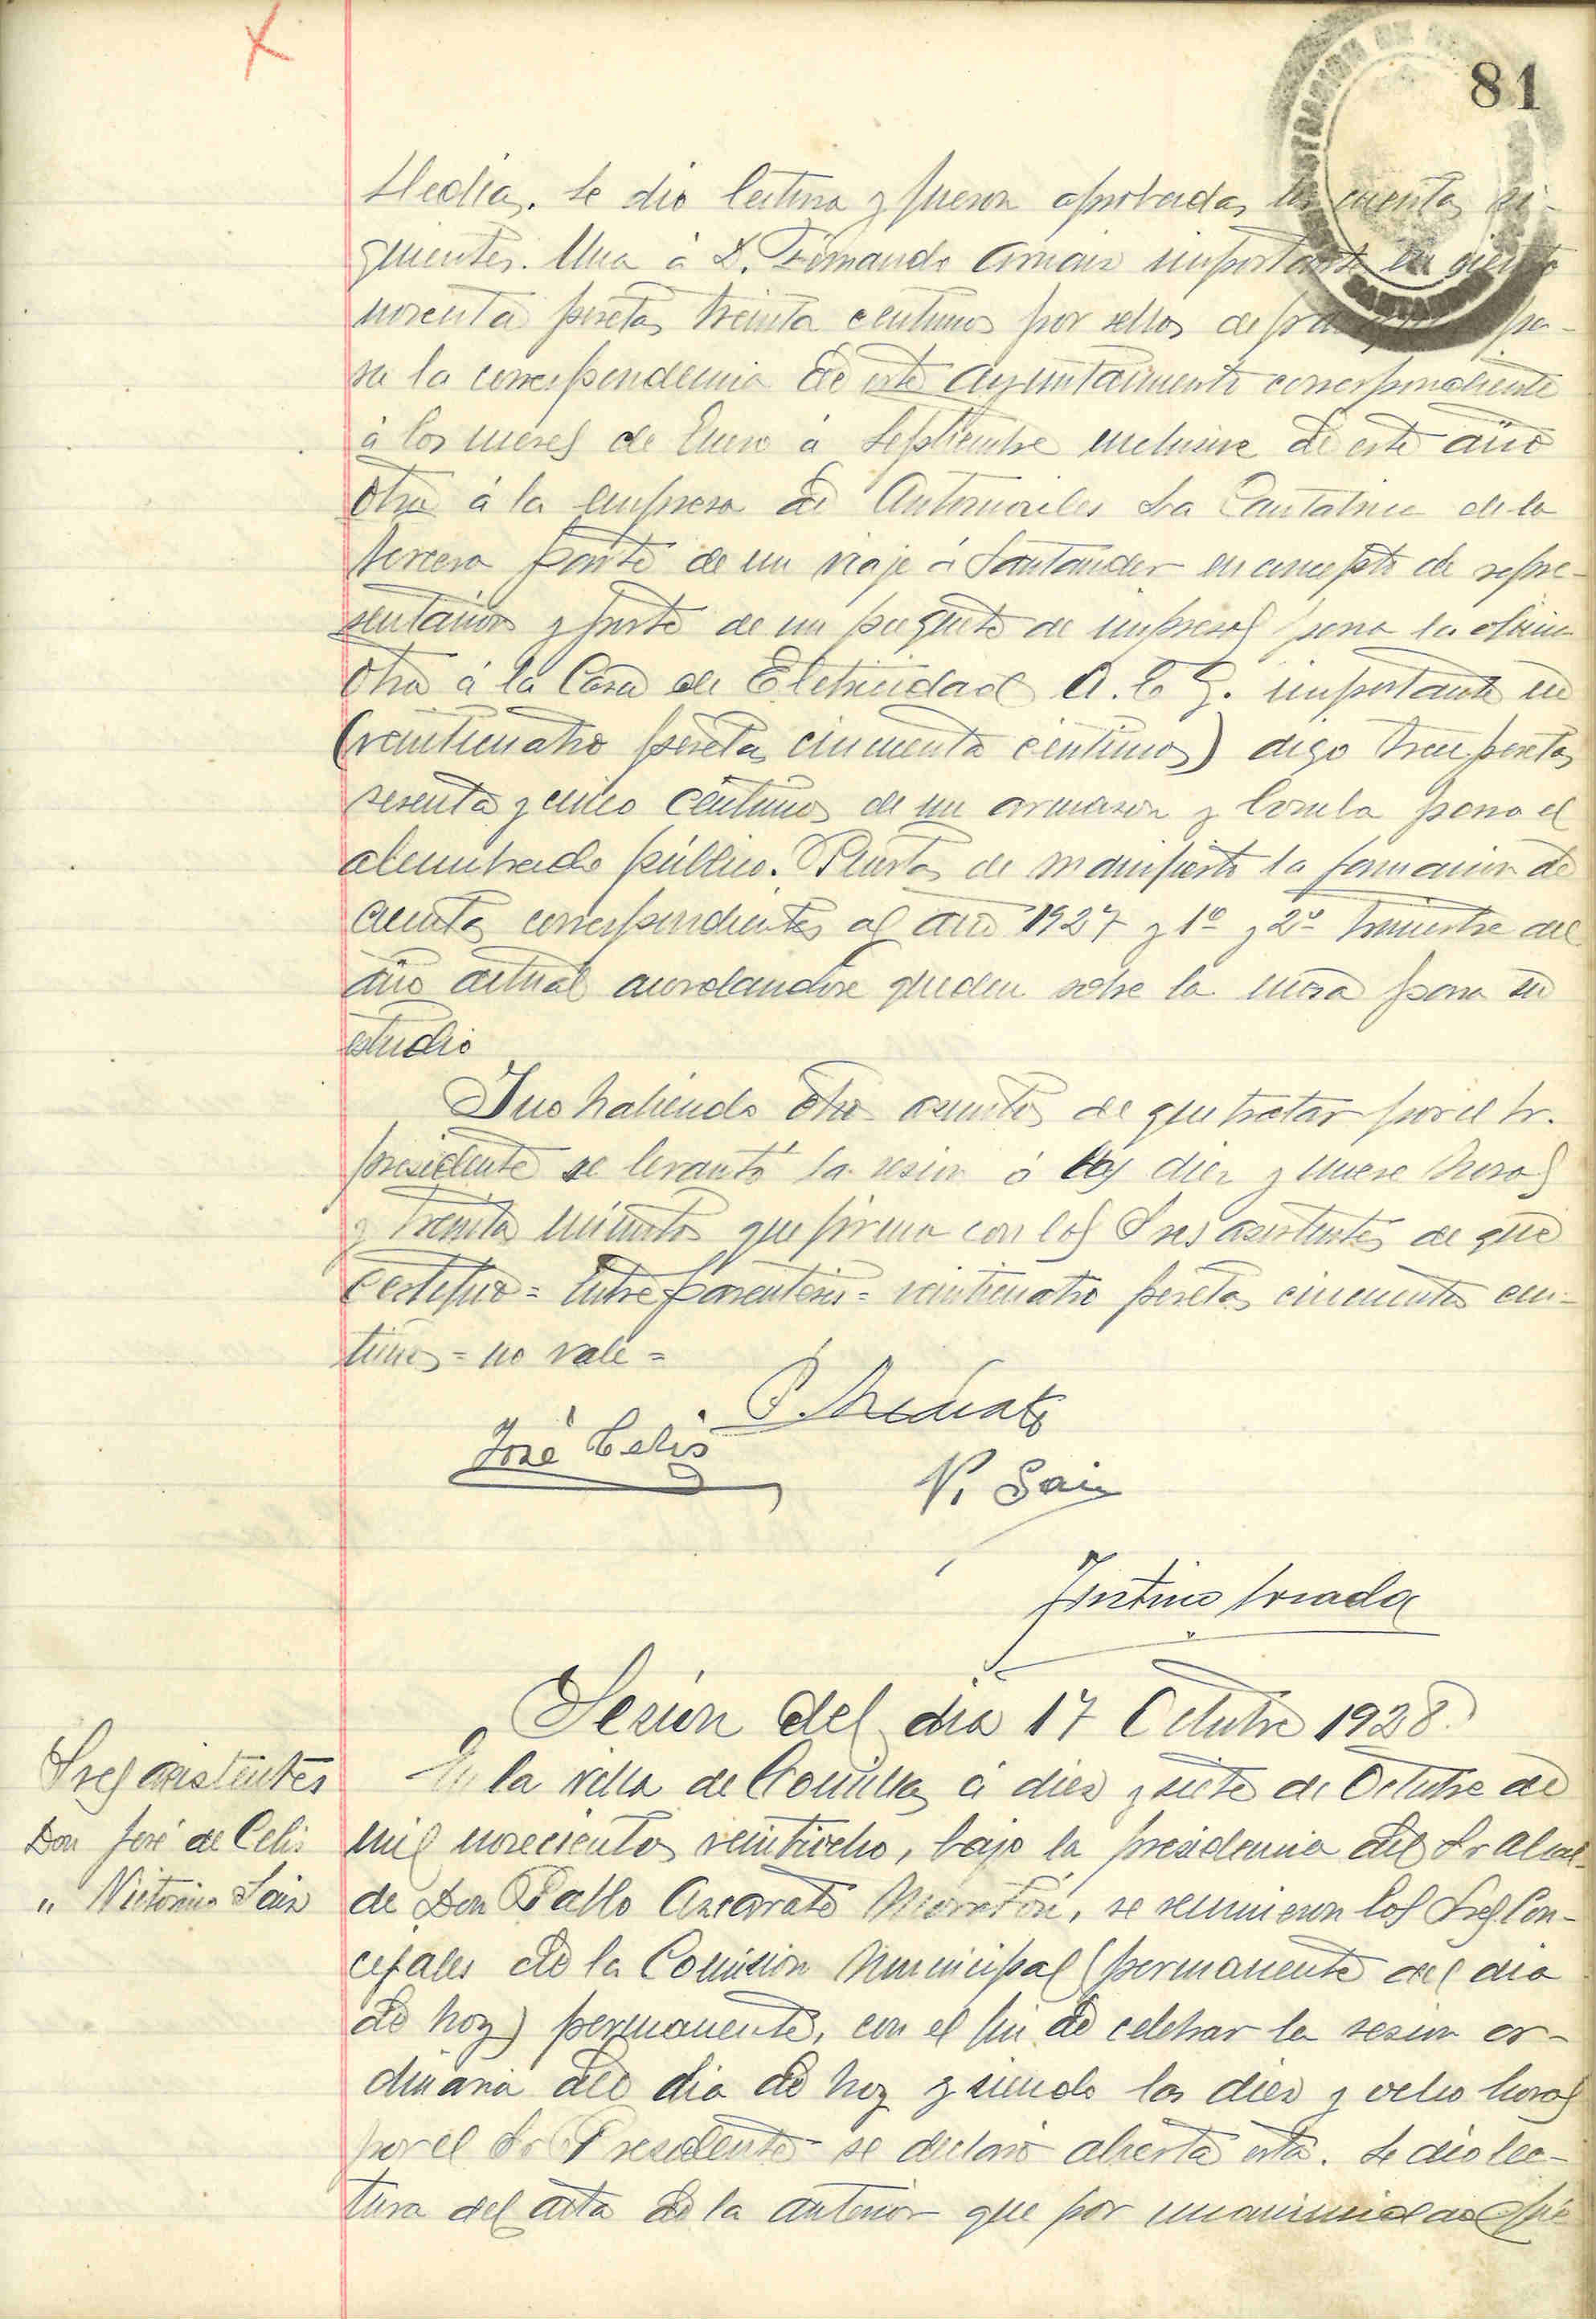 81
Media. Se dio lectura y fueron aprobadas las cuentas si-
guientes. Una á D. Fernando Arnaiz importante en ciento
noventa pesetas treinta centimos por sellos de pa-
ra la correspondencia de este Ayuntamiento correspondiente
á los meses de Enero á Septiembre inclusive de este año
Otra á la empresa de Automoviles La Cantabrica de la
tercera parte de un viaje á Santander en concepto de repre-
sentacion y porte de un paquete de impresos para la oficina
Otra á la Casa de Eletricidad A. E G. importante en
(veinticuatro pesetas cincuenta centimos) digo trece pesetas
sesenta y cinco centimos de un armason y bomba para el
alumbrado público. Puesta de manifiesto la formacion de
cuentas correspondientes al año 1927 y 1º y 2º trimestre del
año actual acordandose queden sobre la mesa para su
estudio
Y no habiendo otros asuntos de que tratar por el Sr.
presidente se levantó la sesion á las diez y nueve horas
y treinta minutos que firma con los Sres asistentes de que
Certifico = Entre parentesis = veinticuatro pesetas cincuenta cen-
timos = no vale =
José Celis
V. Saiz
Justino
Sesión del dia 17 Octubre 1928.
Sres asistentes
Don José de Celis
" Victorino Saiz
En la villa de Comillas á diez y siete de Octubre de
mil novecientos veintiocho, bajo la presidencia del Sr Alcal-
de Don Pablo Azcarate Moratón, se reunieron los Sres Con-
cejales de la Comision Municipal (permanente del dia
de hoy) permanente, con el fin de celebrar la sesion or-
dinaria del dia de hoy y siendo las diez y ocho horas
por el Sr Presidente se declaró abierta esta. Se dio lec-
tura del acta de la anterior que por unanimidad fué